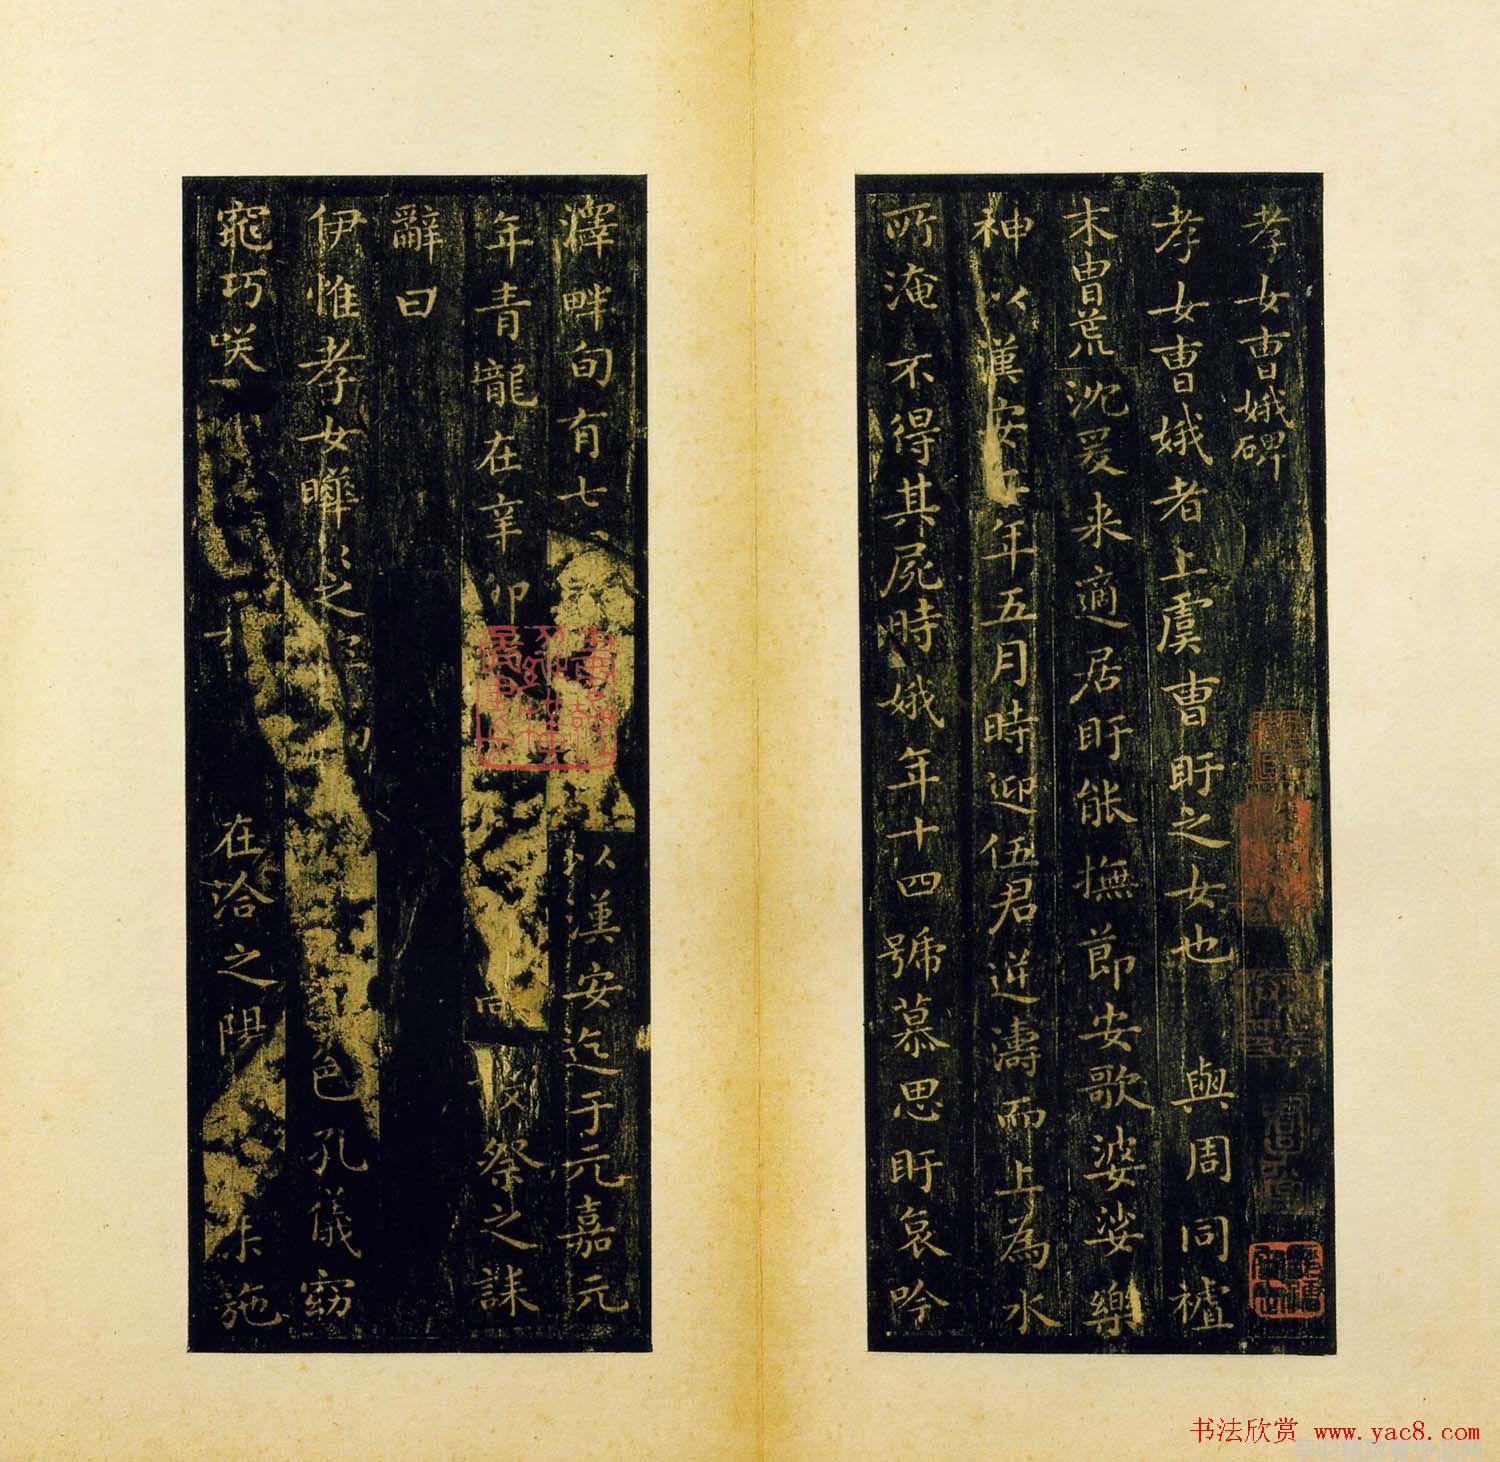 孝女曹娥碑
孝女曹娥者上虞曹盱之女也 與周同禇
末曹荒沈爰来適居盱能撫節安歌婆娑樂
神以漢安二年五月時迎伍君逆濤而上為水
所淹不得其屍時娥年十四號慕思盱哀吟
澤畔旬有七 以漢安迄于元嘉元
年青龍在辛卯 祭之誄
辭曰
伊惟孝女曄之 色孔儀窈
窕巧咲 在洽之陽 施
书法欣赏 www.yac8.com